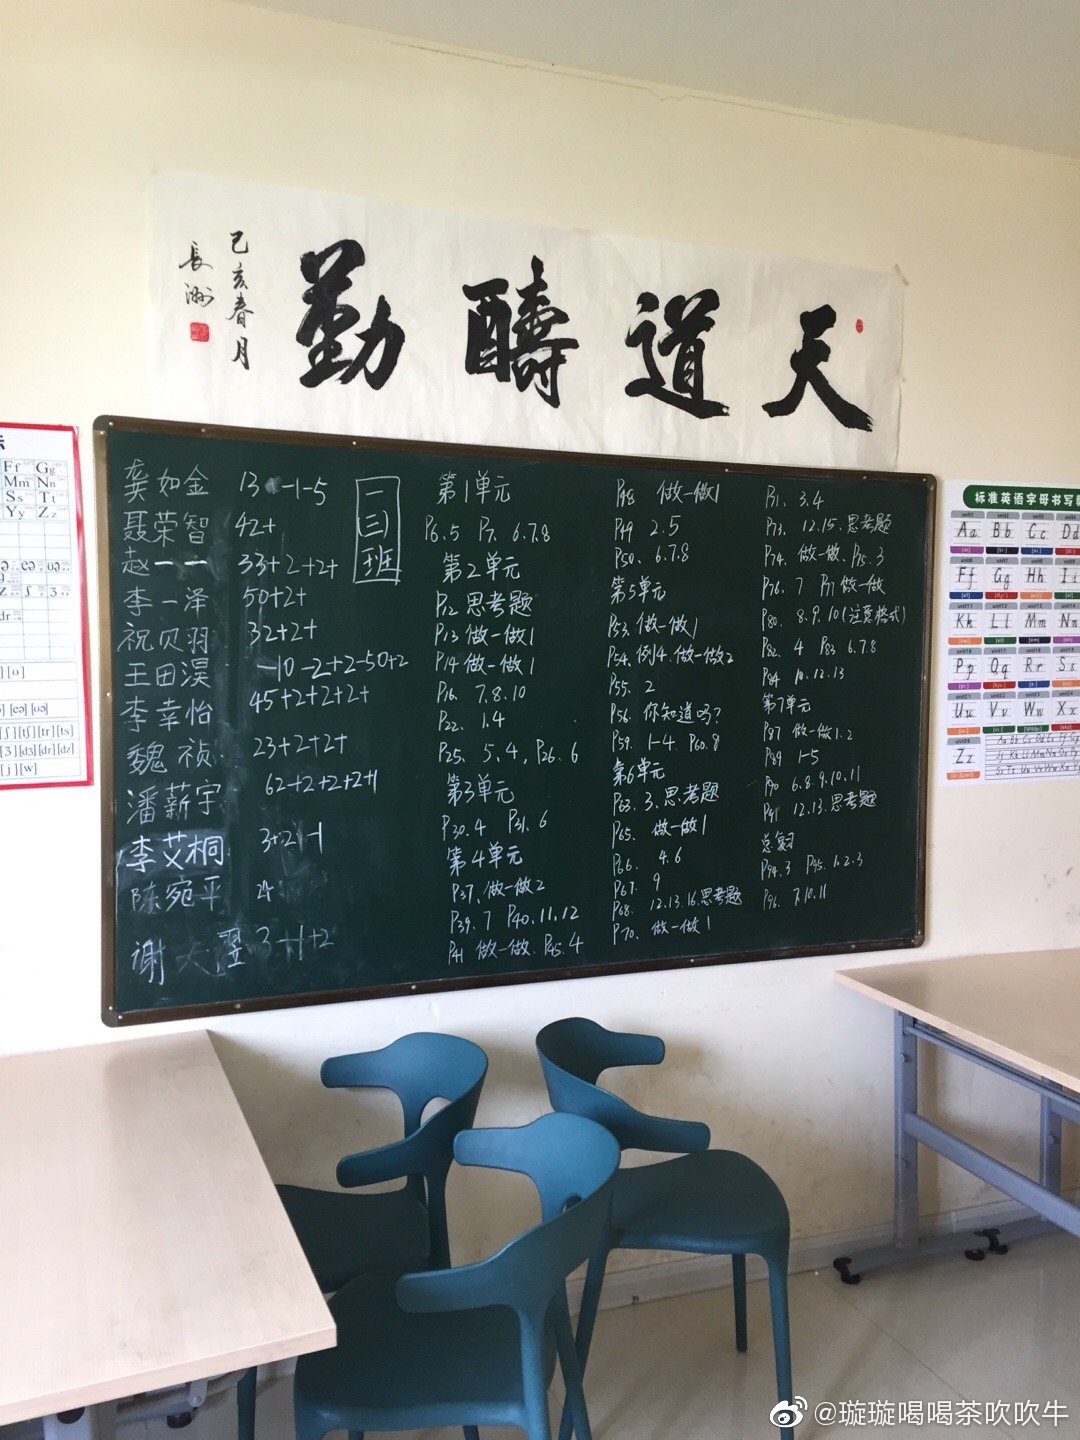 天道酬勤
己亥春月
長洲
龚如金 13 -1-5
聂荣智 42+
赵一一 33+2+2+
李一泽 50+2+
祝贝羽 32+2+
王田淏 -10-2+2-50+2
李幸怡 45+2+2+2+
魏祯 23+2+2+
潘薪宇 62+2+2+2+1
李艾桐 3+2-1
陈宛平 24
谢天翌 3+1+2
一(三)班
第1单元
P6.5 P7. 6.7.8
第2单元
P12 思考题
P13 做一做1
P14 做一做1
P16. 7.8.10
P22. 1.4
P25、5、4, P26.6
第3单元
P30.4 P31.6
第4单元
P37、做一做2
P39.7 P40.11.12
P41 做一做、P45.4
P48 做一做1
P49 2.5
P50、6.7.8
第5单元
P53、做一做1
P54、例4、做一做2
P55. 2
P56、你知道吗?
P59、1-4、P60.8
第6单元
P63、3、思考题
P65、做一做1
P66. 4.6
P67. 9
P68. 12.13.16.思考题
P70、做一做1
P71、3.4
P73、12.15、思考题
P74、做一做、P75.3
P76.7 P77做一做
P80. 8.9.10(注意格式)
P82. 4 P83 6.7.8
P84 10.12.13
第7单元
P87 做一做1.2
P89 1-5
P90 6.8.9.10.11
P91 12.13.思考题
总复习
P94.3 P95.1.2.3
P96. 7.10.11
Ff Gg
Mm Nn
Ss Tt
Yy Zz
标准英语字母书写
Aa Bb Cc Dd
Ff Gg Hh
Kk Ll Mm Nn
Pp Qq Rr Ss
Uu Vv Ww Xx
Zz
@璇璇喝喝茶吹吹牛